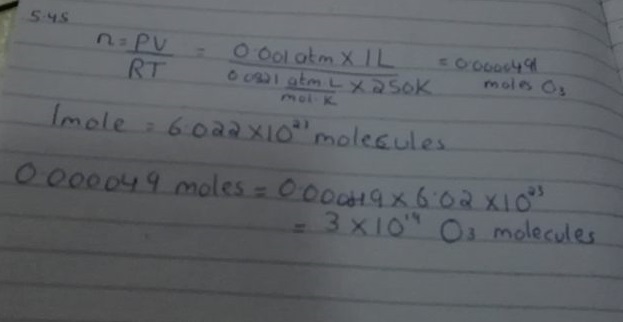 5.45
n = PV / RT = 0.001 atm × 1 L / 0.0821 atm L / mol. K × 250K = 0.000049 moles O₃
1mole = 6.022 × 10²³ molecules
0.000049 moles = 0.000049 × 6.02 × 10²³
= 3 × 10¹⁹ O₃ molecules